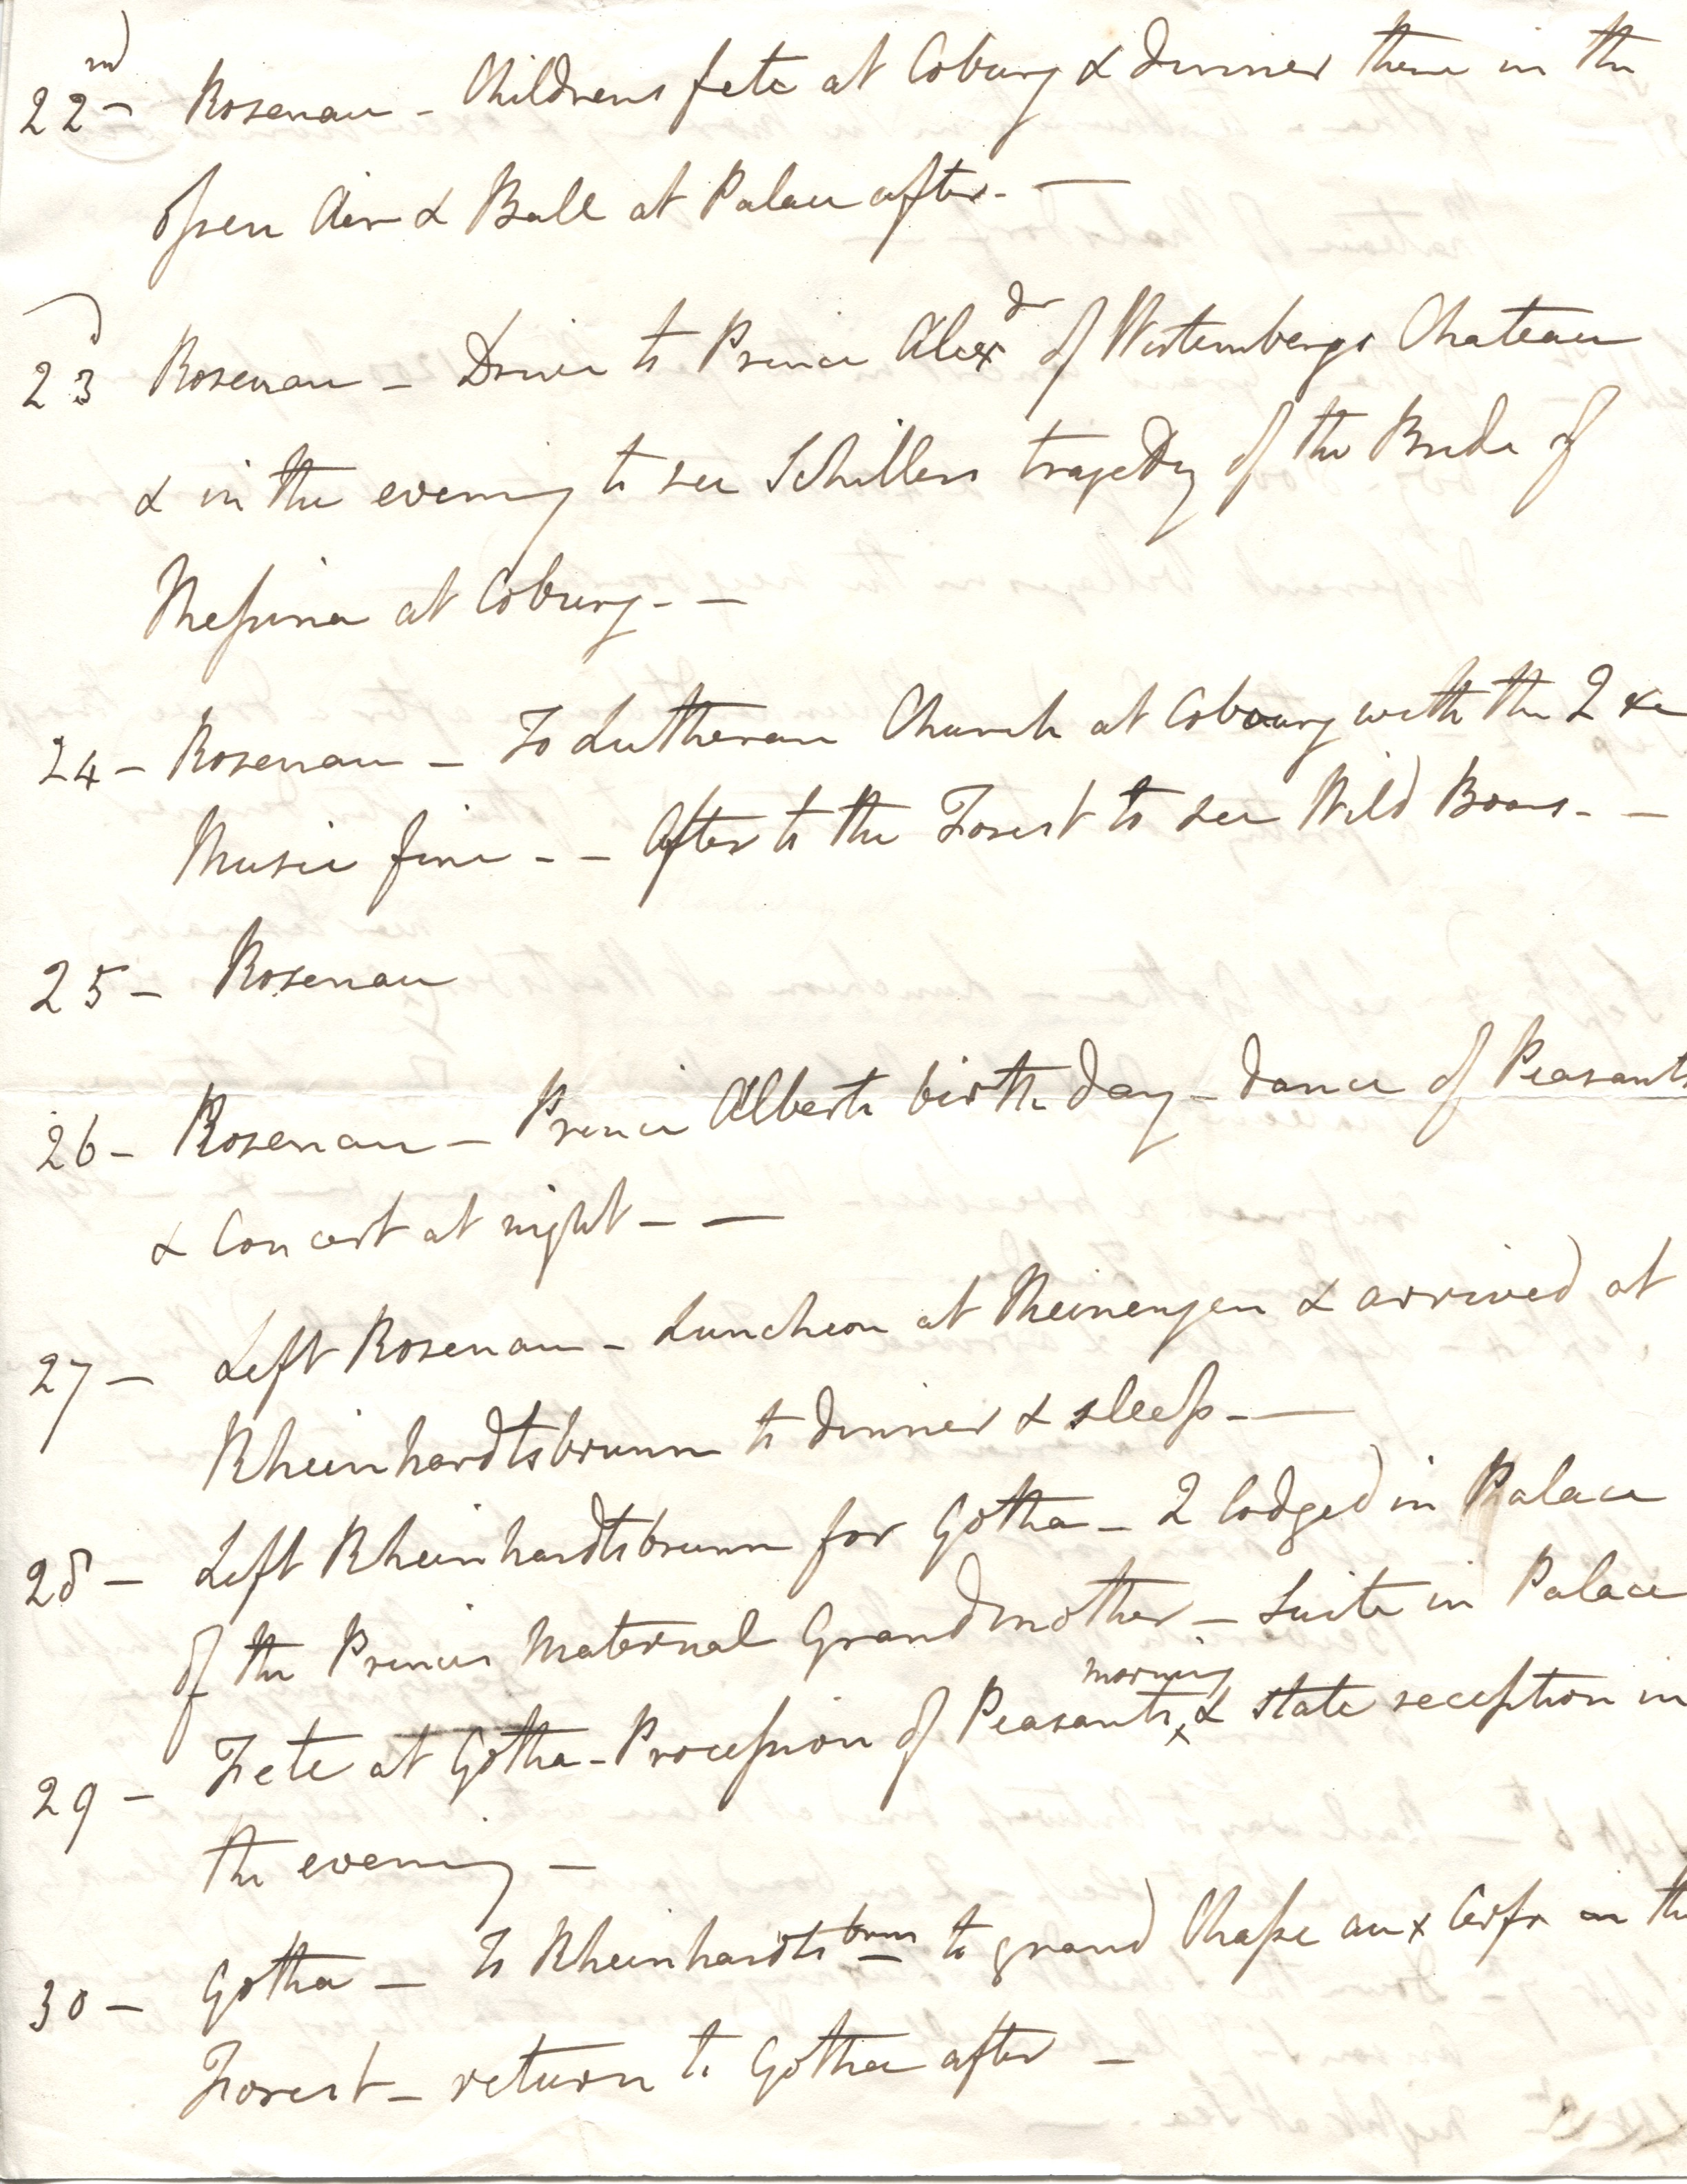 22nd Rosenau - Childrens fete at Coburg & dinner there in the
open Air & Ball at Palace after. —
23 Rosenau - Drive to Prince Alexdr of Wirtembergs Chateau
& in the evening to see Schillers tragedy of the Bride of
Messina at Coburg. —
24 - Rosenau - To Lutheran Church at Cobourg with the 2 &c
Music fine - - After to the Forest to see Wild Boars. -
25 - Rosenau
26 - Rosenau - Prince Alberts birth day - dance of Peasants
& Concert at night - —
27 - Left Rosenau - Luncheon at Meinengen & arrived at
Rheinhardtsbrunn to dinner & sleep. —
28 - Left Rheinhardtsbrunn for Gotha - 2 lodged in Palace
of the Princes Maternal Grandmother - Suite in Palace
29 - Fete at Gotha - Procession of Peasants morning & State reception in
the evening -
30 - Gotha - To Rheinhardtsbrun to grand Chasse aux Cerfs in the
Forest - return to Gotha after -